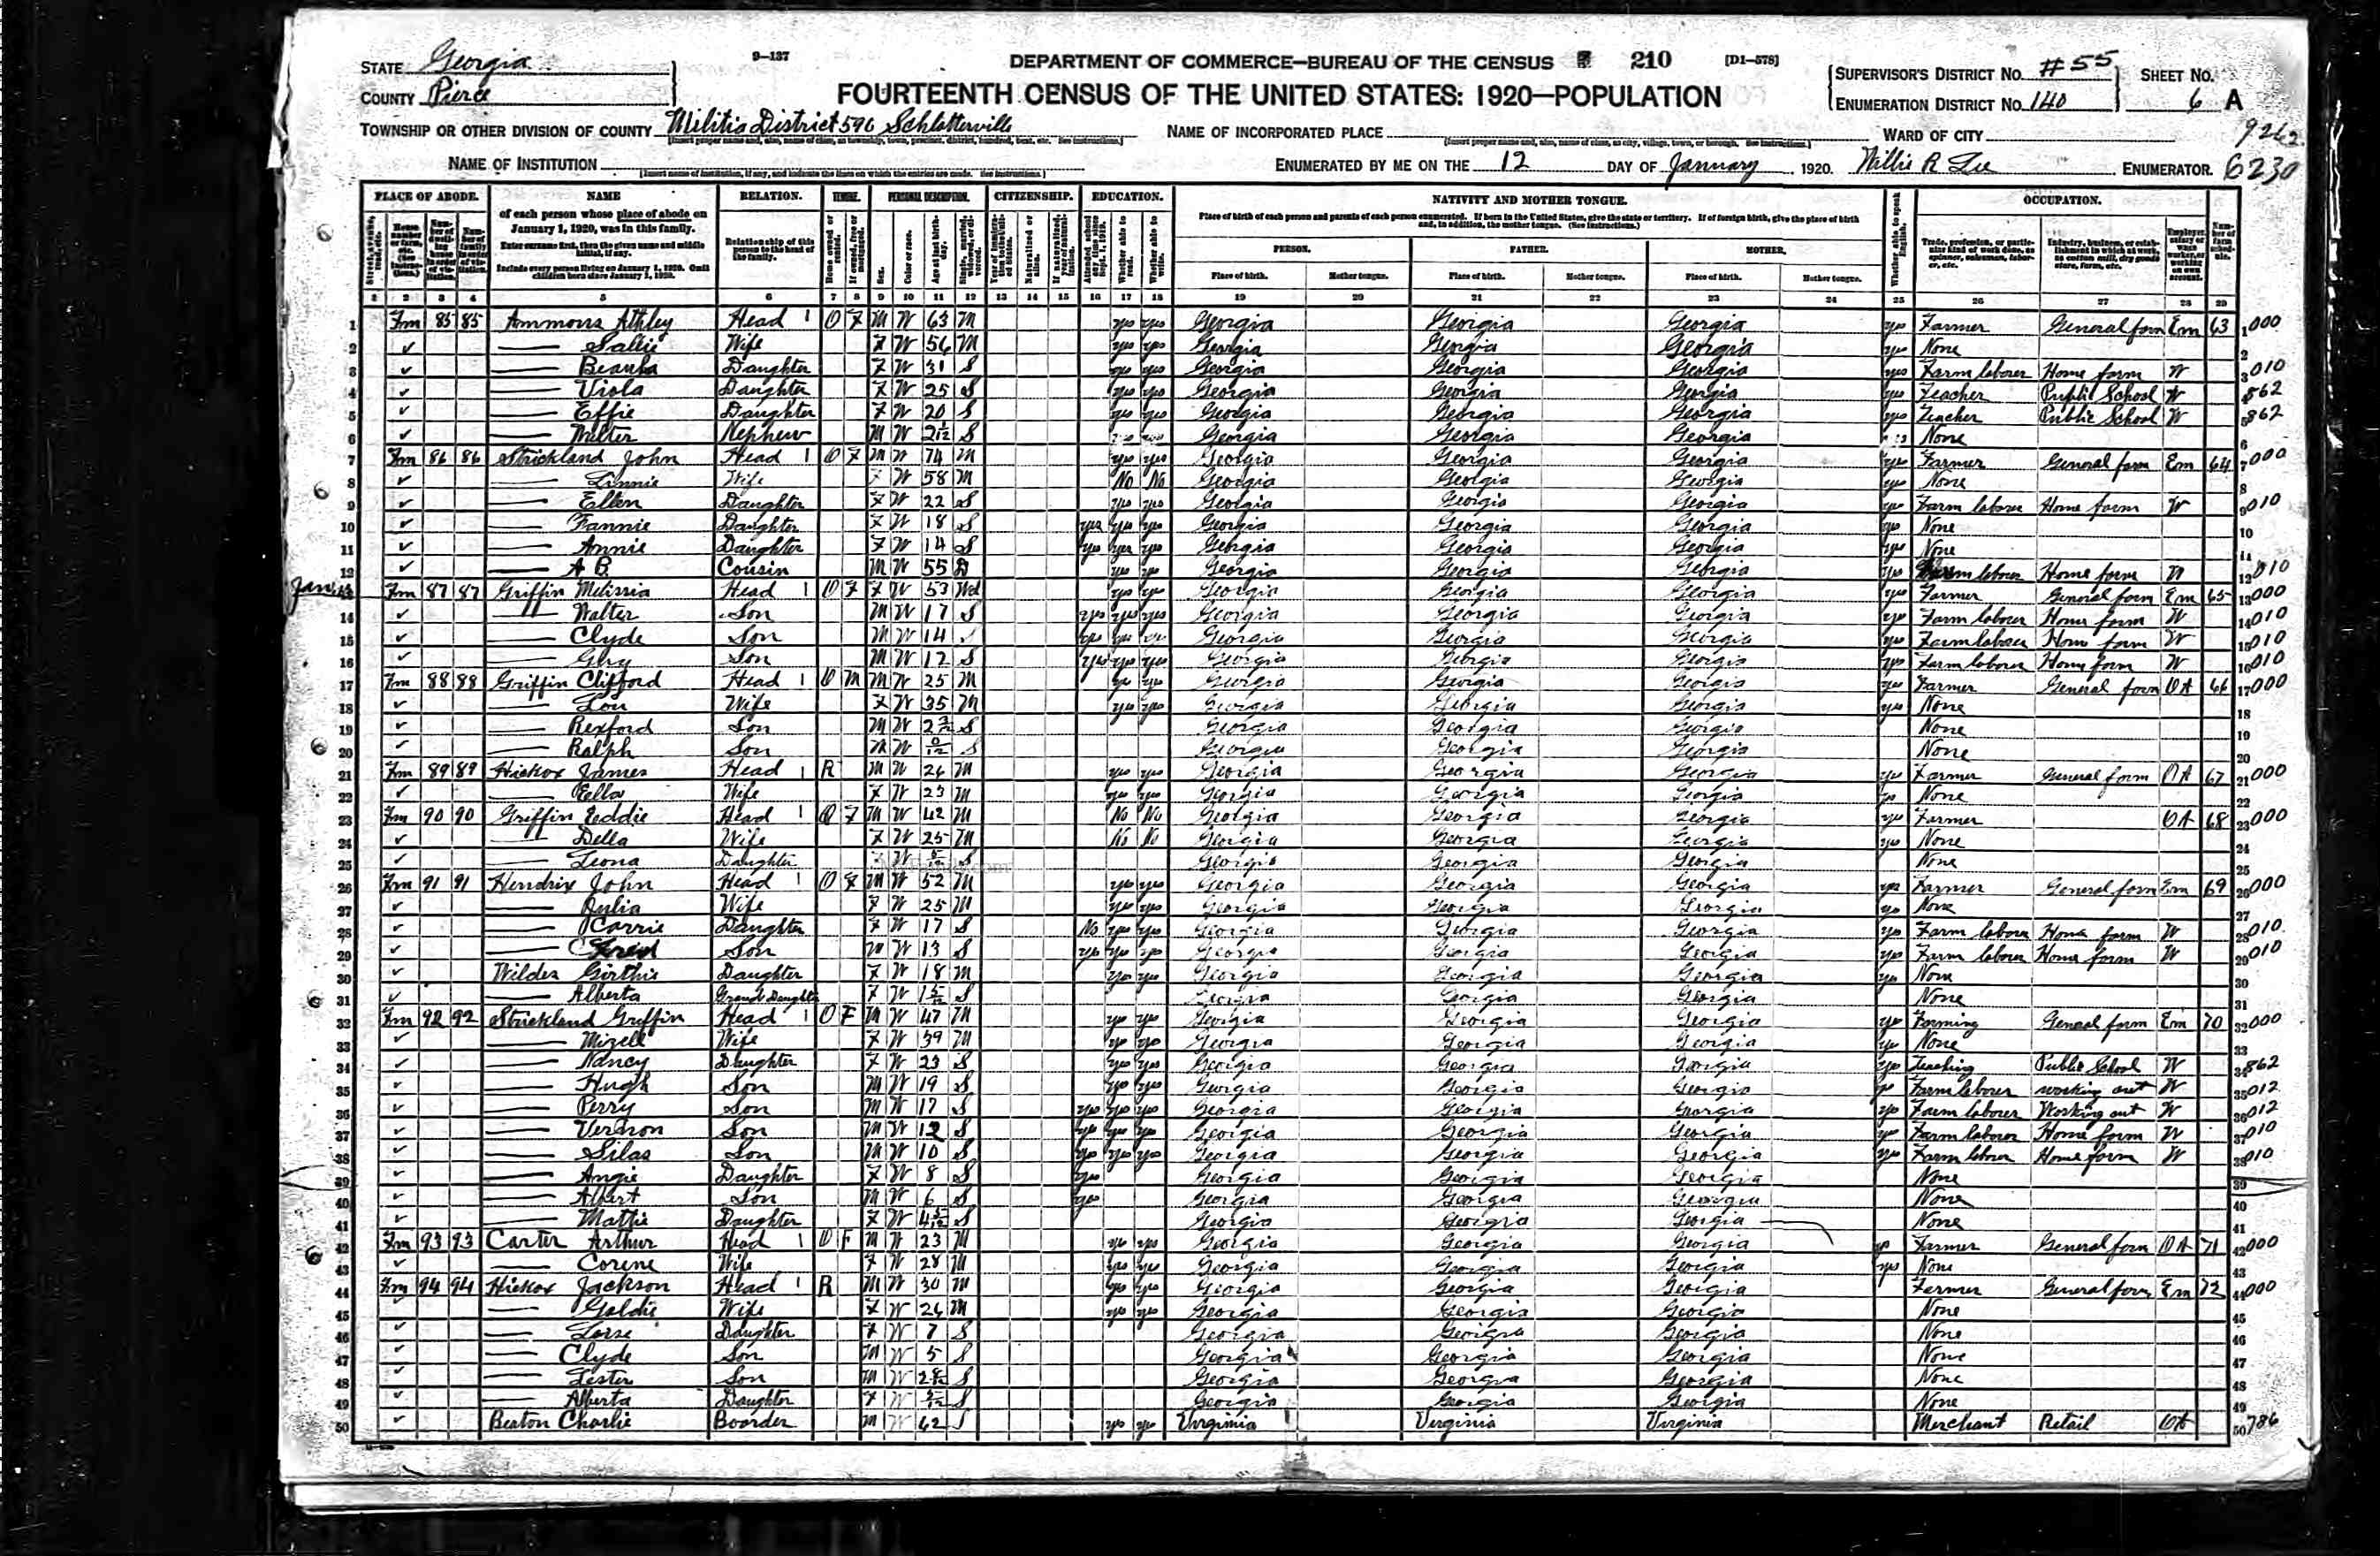 STATE Georgia
COUNTY Pierce
9-137
DEPARTMENT OF COMMERCE—BUREAU OF THE CENSUS 210 [D1-578]
FOURTEENTH CENSUS OF THE UNITED STATES: 1920—POPULATION
SUPERVISOR'S DISTRICT No. #55 SHEET No.
ENUMERATION DISTRICT No. 140 6 A
TOWNSHIP OR OTHER DIVISION OF COUNTY Militia District 590 Schlatterville NAME OF INCORPORATED PLACE WARD OF CITY 9262
NAME OF INSTITUTION ENUMERATED BY ME ON THE 12 DAY OF January, 1920. Willis R Lee ENUMERATOR. 6230
PLACE OF ABODE. NAME RELATION. TENURE. PERSONAL DESCRIPTION. CITIZENSHIP. EDUCATION. NATIVITY AND MOTHER TONGUE. OCCUPATION.
of each person whose place of abode on January 1, 1920, was in this family.
Enter surname first, then the given name and middle initial, if any.
Include every person living on January 1, 1920. Omit children born since January 1, 1920.
Relationship of this person to the head of the family.
Place of birth of each person and parents of each person enumerated. If born in the United States, give the state or territory. If of foreign birth, give the place of birth and, in addition, the mother tongue. (See Instructions.)
PERSON. FATHER. MOTHER.
Place of birth. Mother tongue. Place of birth. Mother tongue. Place of birth. Mother tongue.
1 2 3 4 5 6 7 8 9 10 11 12 13 14 15 16 17 18 19 20 21 22 23 24 25 26 27 28 29
1 Fm 85 85 Ammons Athley Head 1 O F M W 63 M yes yes Georgia Georgia Georgia yes Farmer General farm Em 63 1 000
2 Sallie Wife F W 56 M yes yes Georgia Georgia Georgia yes None 2
3 Daughter F W 31 S yes yes Georgia Georgia Georgia yes Farm laborer Home farm W 3 010
4 Viola Daughter F W 25 S yes yes Georgia Georgia Georgia yes Teacher Public School W 4 862
5 Effie Daughter F W 20 S yes yes Georgia Georgia Georgia yes Teacher Public School W 5 862
6 Nephew M W S Georgia Georgia Georgia None 6
7 Fm 86 86 Strickland John Head 1 O F M W 74 M yes yes Georgia Georgia Georgia yes Farmer General farm Em 64 7 000
8 Linnie Wife F W 58 M No No Georgia Georgia Georgia yes None 8
9 Ellen Daughter F W 22 S yes yes Georgia Georgia Georgia yes Farm laborer Home farm W 9 010
10 Fannie Daughter F W 18 S yes yes yes Georgia Georgia Georgia yes None 10
11 Annie Daughter F W 14 S yes yes yes Georgia Georgia Georgia yes None 11
12 A B Cousin M W 55 D yes yes Georgia Georgia Georgia yes Farm laborer Home farm W 12 010
Jan. 13 Fm 87 87 Griffin Melissia Head 1 O F F W 53 Wd yes yes Georgia Georgia Georgia yes Farmer General farm Em 65 13 000
14 Walter Son M W 17 S yes yes yes Georgia Georgia Georgia yes Farm laborer Home farm W 14 010
15 Clyde Son M W 14 S yes yes yes Georgia Georgia Georgia yes Farm laborer Home farm W 15 010
16 Son M W 12 S yes yes yes Georgia Georgia Georgia yes Farm laborer Home farm W 16 010
17 Fm 88 88 Griffin Clifford Head 1 O M M W 25 M yes yes Georgia Georgia Georgia yes Farmer General farm OA 66 17 000
18 Lou Wife F W 35 M yes yes Georgia Georgia Georgia yes None 18
19 Rexford Son M W S Georgia Georgia Georgia None 19
20 Ralph Son M W 0/12 S Georgia Georgia Georgia None 20
21 Fm 89 89 Hickox James Head 1 R M W 26 M yes yes Georgia Georgia Georgia yes Farmer General farm OA 67 21 000
22 Ella Wife F W 23 M yes yes Georgia Georgia Georgia yes None 22
23 Fm 90 90 Griffin Eddie Head 1 O F M W 42 M No No Georgia Georgia Georgia yes Farmer OA 68 23 000
24 Della Wife F W 25 M No No Georgia Georgia Georgia yes None 24
25 Leona Daughter F W S Georgia Georgia Georgia None 25
26 Fm 91 91 Hendrix John Head 1 O F M W 52 M yes yes Georgia Georgia Georgia yes Farmer General farm Em 69 26 000
27 Julia Wife F W 25 M yes yes Georgia Georgia Georgia yes None 27
28 Carrie Daughter F W 17 S No yes yes Georgia Georgia Georgia yes Farm laborer Home farm W 28 010
29 Fred Son M W 13 S yes yes yes Georgia Georgia Georgia yes Farm laborer Home farm W 29 010
30 Wildes Girthie Daughter F W 18 M yes yes Georgia Georgia Georgia yes None 30
31 Alberta Grand Daughter F W S Georgia Georgia Georgia None 31
32 Fm 92 92 Strickland Griffin Head 1 O F M W 47 M yes yes Georgia Georgia Georgia yes Farming General farm Em 70 32 000
33 Mizell Wife F W 39 M yes yes Georgia Georgia Georgia yes None 33
34 Nancy Daughter F W 23 S yes yes Georgia Georgia Georgia yes Teaching Public School W 34 862
35 Hugh Son M W 19 S yes yes Georgia Georgia Georgia yes Farm laborer working out W 35 012
36 Perry Son M W 17 S yes yes yes Georgia Georgia Georgia yes Farm laborer Working out W 36 012
37 Vernon Son M W 12 S yes yes yes Georgia Georgia Georgia yes Farm laborer Home farm W 37 010
38 Silas Son M W 10 S yes yes yes Georgia Georgia Georgia yes Farm laborer Home farm W 38 010
39 Angie Daughter F W 8 S yes Georgia Georgia Georgia None 39
40 Albert Son M W 6 S yes Georgia Georgia Georgia None 40
41 Mattie Daughter F W S Georgia Georgia Georgia None 41
42 Fm 93 93 Carter Arthur Head 1 O F M W 23 M yes yes Georgia Georgia Georgia yes Farmer General farm OA 71 42 000
43 Corene Wife F W 28 M yes yes Georgia Georgia Georgia yes None 43
44 Fm 94 94 Hickox Jackson Head 1 R M W 30 M yes yes Georgia Georgia Georgia Farmer General farm Em 72 44 000
45 Goldie Wife F W 26 M yes yes Georgia Georgia Georgia None 45
46 Daughter F W 7 S Georgia Georgia Georgia None 46
47 Clyde Son M W 5 S Georgia Georgia Georgia None 47
48 Lester Son M W S Georgia Georgia Georgia None 48
49 Alberta Daughter F W S Georgia Georgia Georgia None 49
50 Beaton Charlie Boarder M W 62 S yes yes Virginia Virginia Virginia Merchant Retail OA 50 786